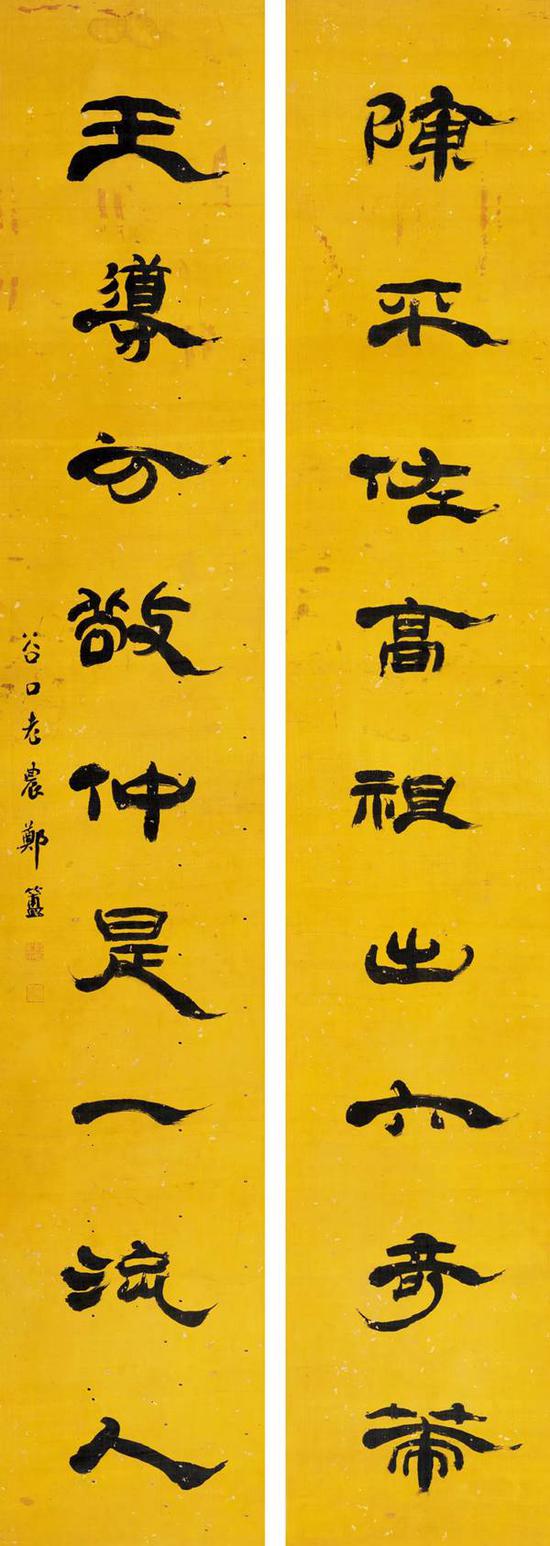 陳平佐高祖出六奇策
王導方敬仲是一流人
谷口老農鄭簠